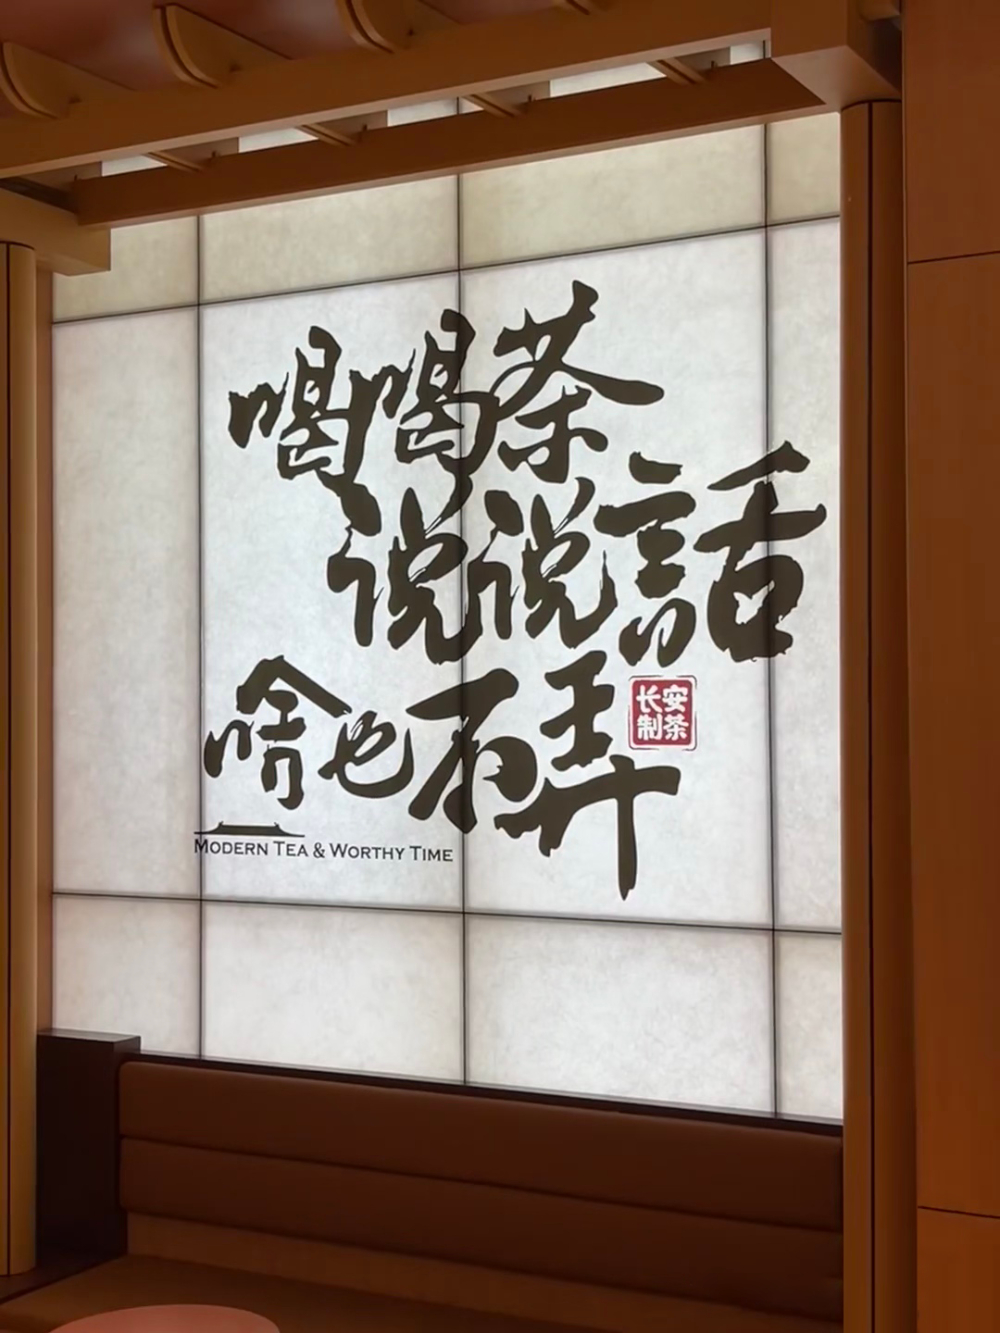 喝喝茶
说说話
啥也不弄
长安
制茶
MODERN TEA & WORTHY TIME